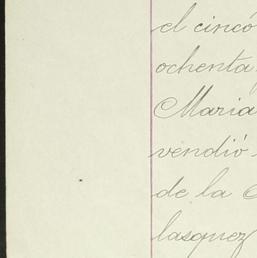 el cinco
ochenta
Maria
vendió
de la
lasquez